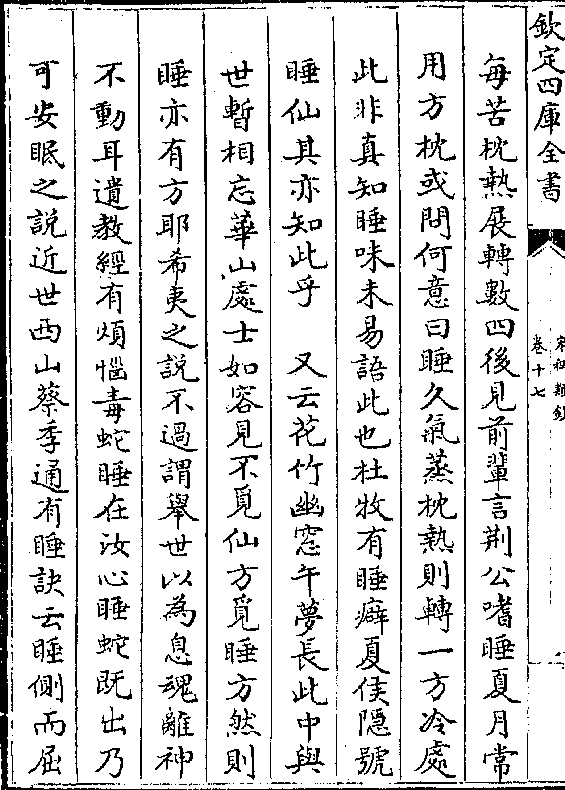 欽定四庫全書
宋稗類鈔
卷十七
每苦枕熱展轉數四後見前輩言荆公嗜睡夏月常
用方枕或問何意曰睡久氣蒸枕熱則轉一方冷處
此非真知睡味未易語此也杜牧有睡癖夏侯隱號
睡仙其亦知此乎　又云花竹幽窓午夢長此中與
世暫相忘華山處士如容見不覓仙方覓睡方然則
睡亦有方耶希夷之説不過謂舉世以為息魂離神
不動耳遺教經有煩惱毒蛇睡在汝心睡蛇既出乃
可安眠之説近世西山蔡季通有睡訣云睡側而屈